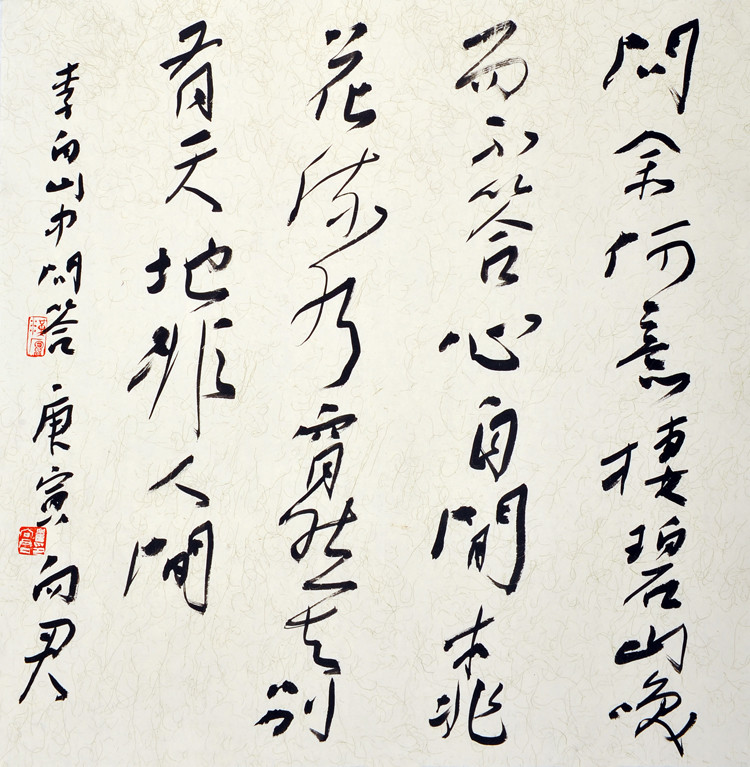 問余何意棲碧山咲
而不答心自閒桃
花流水窅然去別
有天地非人間
李白山中問答 庚寅 向君